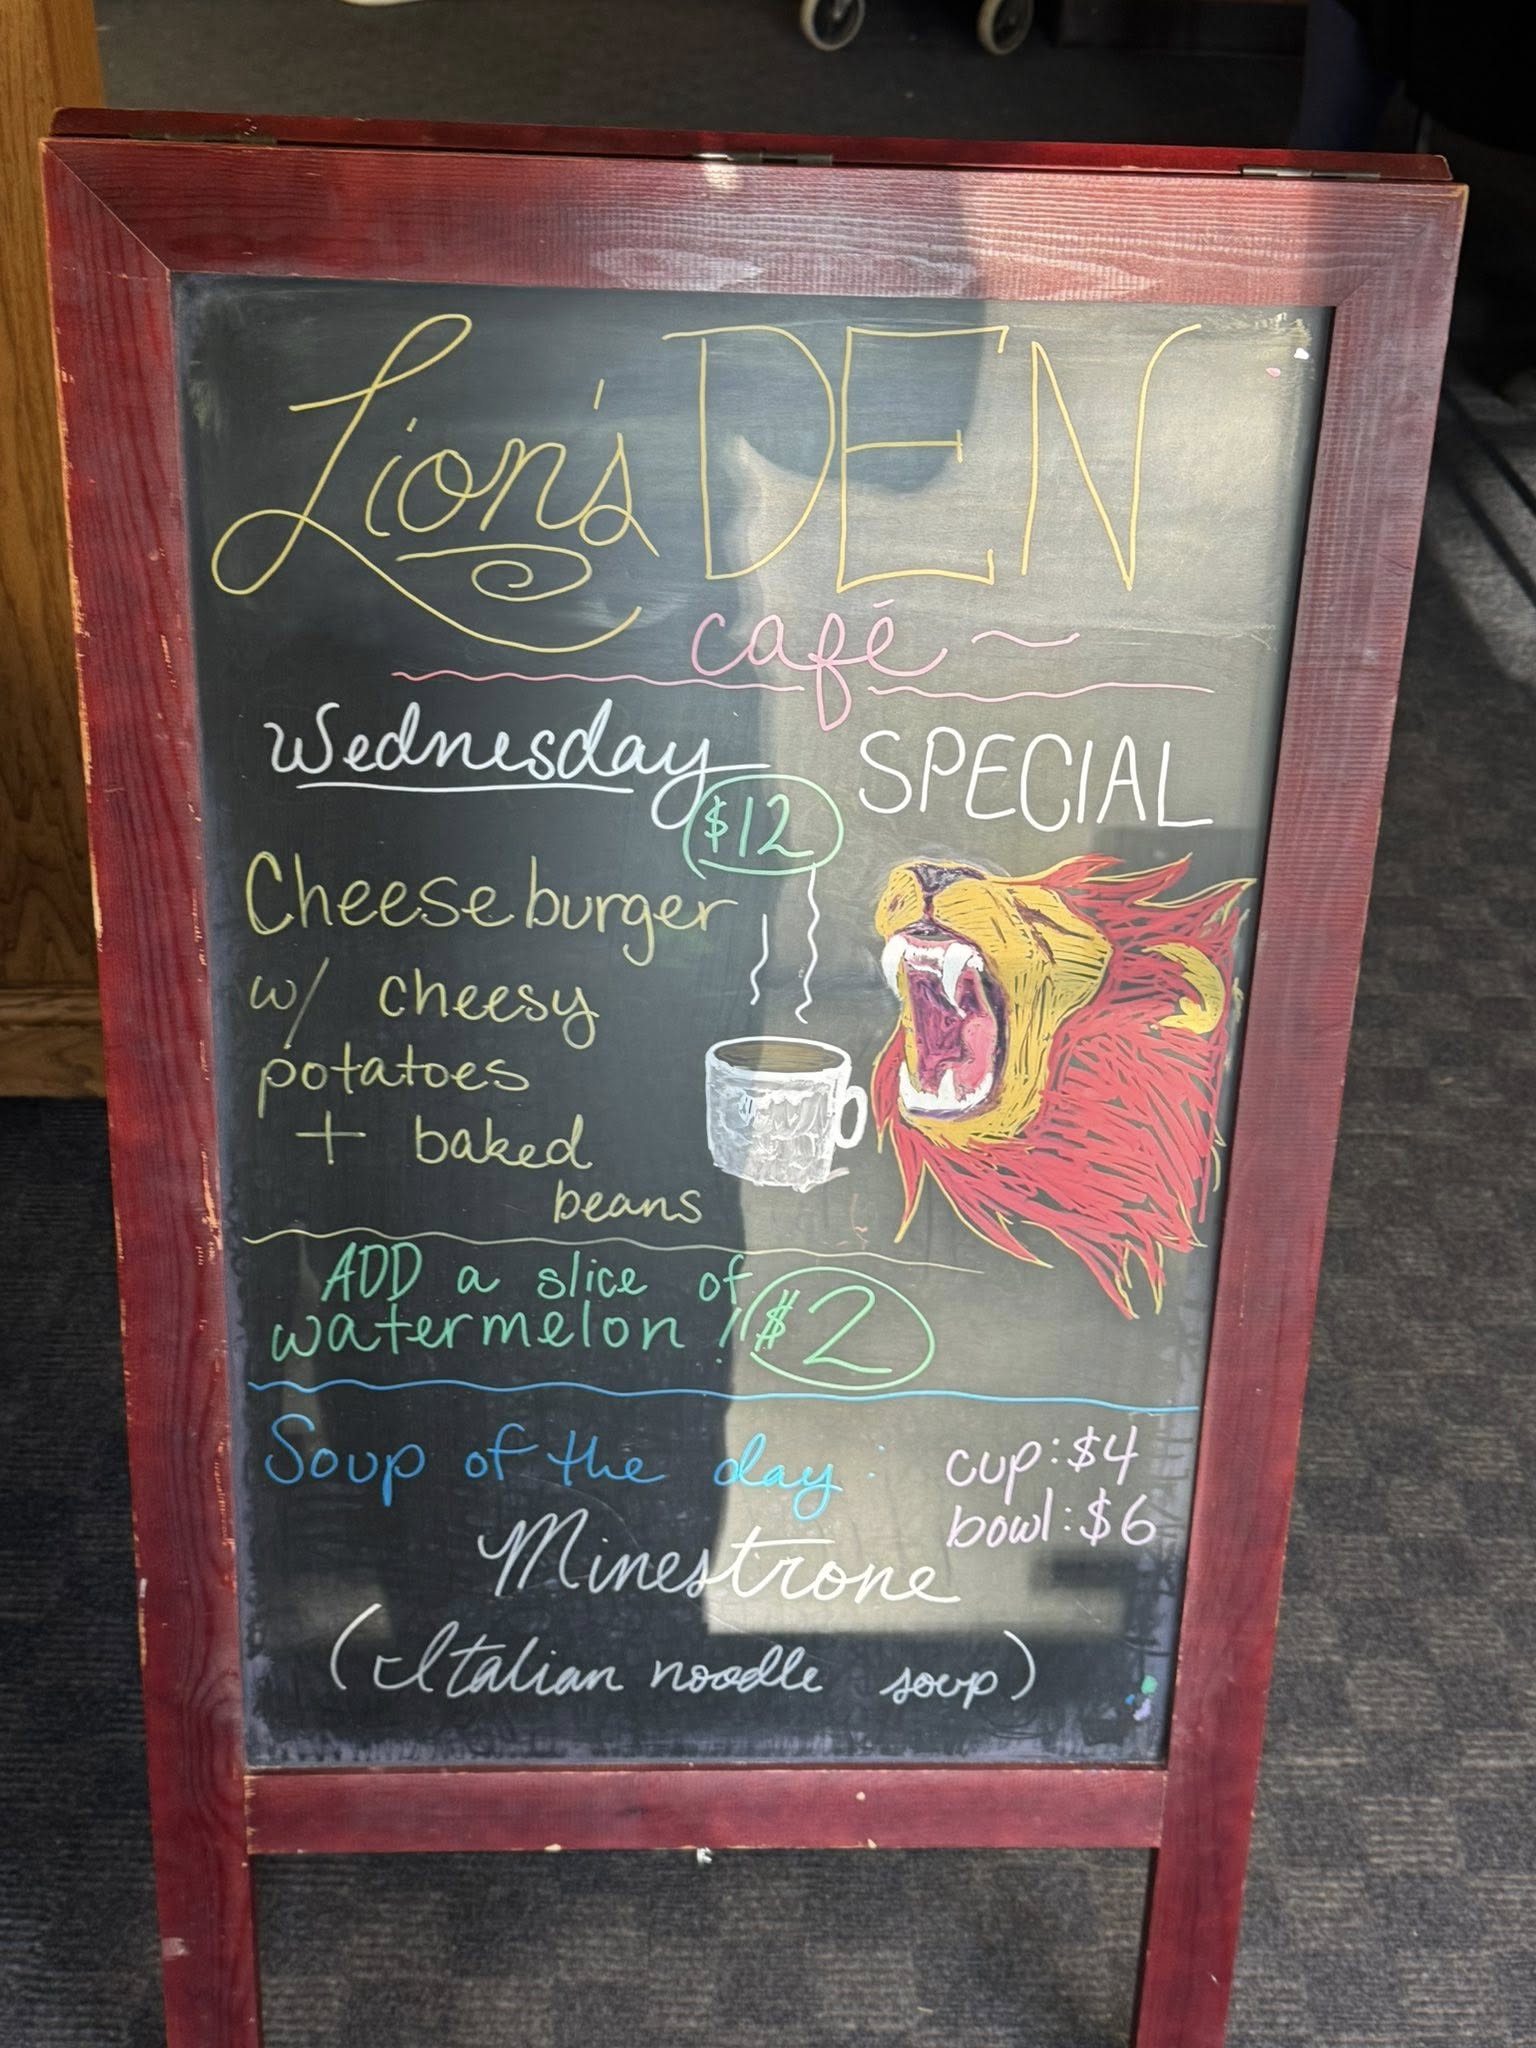 Lion's DEN
café ~
Wednesday SPECIAL
$12
Cheeseburger
w/ cheesy
potatoes
+ baked
beans
ADD a slice of
watermelon! $2
Soup of the day:
cup: $4
bowl: $6
Minestrone
(Italian noodle soup)